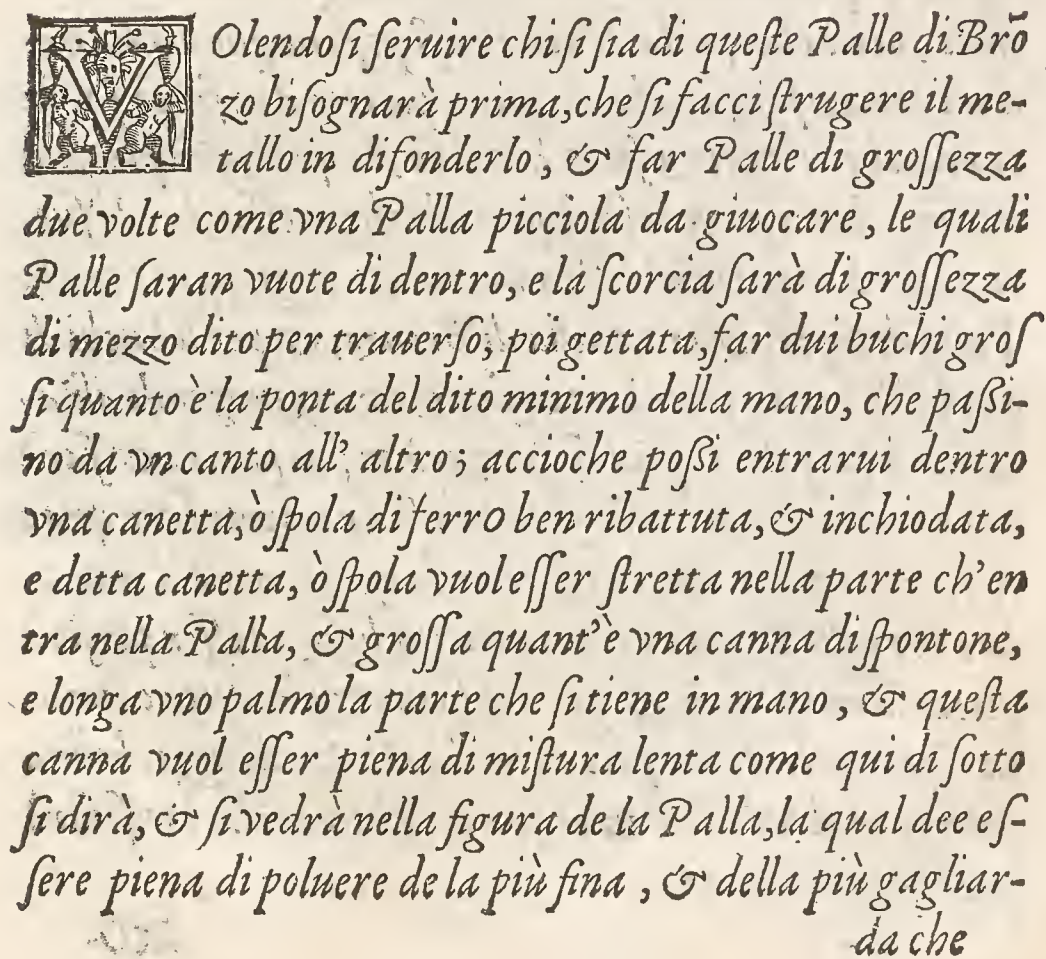 VOlendoſi ſeruire chi ſi ſia di queſte Palle di Brõ
zo biſognarà prima, che ſi facci ſtrugere il me-
tallo in difonderlo, & far Palle di groſſezza
due volte come vna Palla picciola da giuocare, le quali
Palle ſaran vuote di dentro, e la ſcorcia ſarà di groſſezza
di mezzo dito per trauerſo; poi gettata, far dui buchi groſ
ſi quanto è la ponta del dito minimo della mano, che paſſi-
no da vn canto all' altro; accioche poſſi entrarui dentro
vna canetta, ò ſpola di ferro ben ribattuta, & inchiodata,
e detta canetta, ò ſpola vuol eſſer ſtretta nella parte ch'en
tra nella Palla, & groſſa quant'è vna canna di ſpontone,
e longa vno palmo la parte che ſi tiene in mano, & queſta
canna vuol eſſer piena di miſtura lenta come qui di ſotto
ſi dirà, & ſi vedrà nella figura de la Palla, la qual dee eſ-
ſere piena di poluere de la più fina, & della più gagliar-
da che